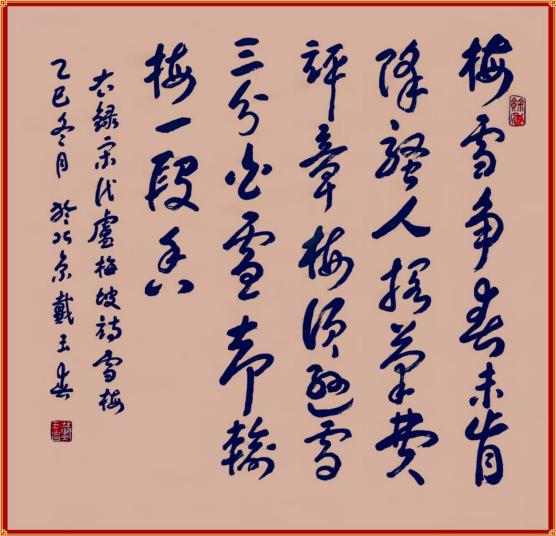 梅雪争春未肯
降骚人搁筆费
評章梅須遜雪
三分白雪却输
梅一段香
右録宋代盧梅坡詩雪梅
乙巳冬月於北京戴玉春